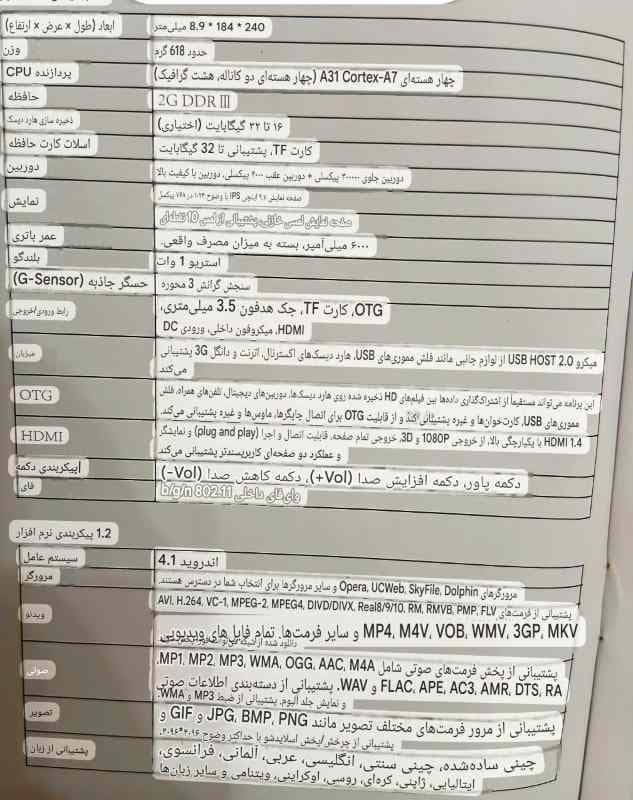 ابعاد (طول × عرض × ارتفاع)
240 * 184 * 8.9 میلی‌متر
وزن
حدود 618 گرم
پردازنده CPU
چهار هسته‌ای A31 Cortex-A7 (چهار هسته‌ای دو کاناله، هشت گرافیک)
حافظه
2G DDRⅢ
ذخیره سازی هارد دیسک
۱۶ تا ۳۲ گیگابایت (اختیاری)
اسلات کارت حافظه
کارت TF، پشتیبانی تا 32 گیگابایت
دوربین
دوربین جلوی ۳۰۰۰۰۰ پیکسلی + دوربین عقب ۲۰۰۰ پیکسلی، دوربین با کیفیت بالا
نمایش
صفحه نمایش ۹.۷ اینچی IPS با وضوح ۱۰۲۴ در ۷۶۸ پیکسل
صفحه نمایش لمسی خازنی، پشتیبانی از لمس 10 نقطه‌ای
عمر باتری
۶۰۰۰ میلی‌آمپر، بسته به میزان مصرف واقعی.
بلندگو
استریو 1 وات
حسگر جاذبه (G-Sensor)
سنجش گرانش 3 محوره
رابط ورودی/خروجی
OTG، کارت TF، جک هدفون 3.5 میلی‌متری،
HDMI، میکروفون داخلی، ورودی DC
میزبان
میکرو USB HOST 2.0 از لوازم جانبی مانند فلش مموری‌های USB، هارد دیسک‌های اکسترنال، اترنت و دانگل 3G پشتیبانی
می‌کند
OTG
این برنامه می‌تواند مستقیماً از اشتراک‌گذاری داده‌ها بین فیلم‌های HD ذخیره شده روی هارد دیسک‌ها، دوربین‌های دیجیتال، تلفن‌های همراه، فلش
مموری‌های USB، کارت‌خوان‌ها و غیره پشتیبانی کند و از قابلیت OTG برای اتصال چاپگرها، ماوس‌ها و غیره پشتیبانی می‌کند.
HDMI
HDMI 1.4 با یکپارچگی بالا، از خروجی 1080P و 3D، خروجی تمام صفحه، قابلیت اتصال و اجرا (plug and play) و نمایشگر
و عملکرد دو صفحه‌ای کاربرپسندتر پشتیبانی می‌کند
پیکربندی دکمه
دکمه پاور، دکمه افزایش صدا (Vol+)، دکمه کاهش صدا (Vol-)
فای
وای‌فای داخلی 802.11 b/g/n
1.2 پیکربندی نرم افزار
سیستم عامل
اندروید 4.1
مرورگر
مرورگرهای Opera, UCWeb, SkyFile, Dolphin و سایر مرورگرها برای انتخاب شما در دسترس هستند.
ویدئو
پشتیبانی از فرمت‌های AVI, H.264, VC-1, MPEG-2, MPEG4, DIVD/DIVX, Real8/9/10, RM, RMVB, PMP, FLV,
MP4, M4V, VOB, WMV, 3GP, MKV و سایر فرمت‌ها. تمام فایل‌های ویدیویی
دانلود شده از شبکه
صوتی
پشتیبانی از پخش فرمت‌های صوتی شامل MP1, MP2, MP3, WMA, OGG, AAC, M4A,
FLAC, APE, AC3, AMR, DTS, RA و WAV. پشتیبانی از دسته‌بندی اطلاعات صوتی
و نمایش جلد آلبوم. پشتیبانی از ضبط MP3 و WMA.
تصویر
پشتیبانی از مرور فرمت‌های مختلف تصویر مانند JPG, BMP, PNG و GIF و
پشتیبانی از چرخش/پخش اسلایدشو با حداکثر وضوح ۴۰۹۶*۴۰۹۶.
پشتیبانی از زبان
چینی ساده‌شده، چینی سنتی، انگلیسی، عربی، آلمانی، فرانسوی،
ایتالیایی، ژاپنی، کره‌ای، روسی، اوکراینی، ویتنامی و سایر زبان‌ها